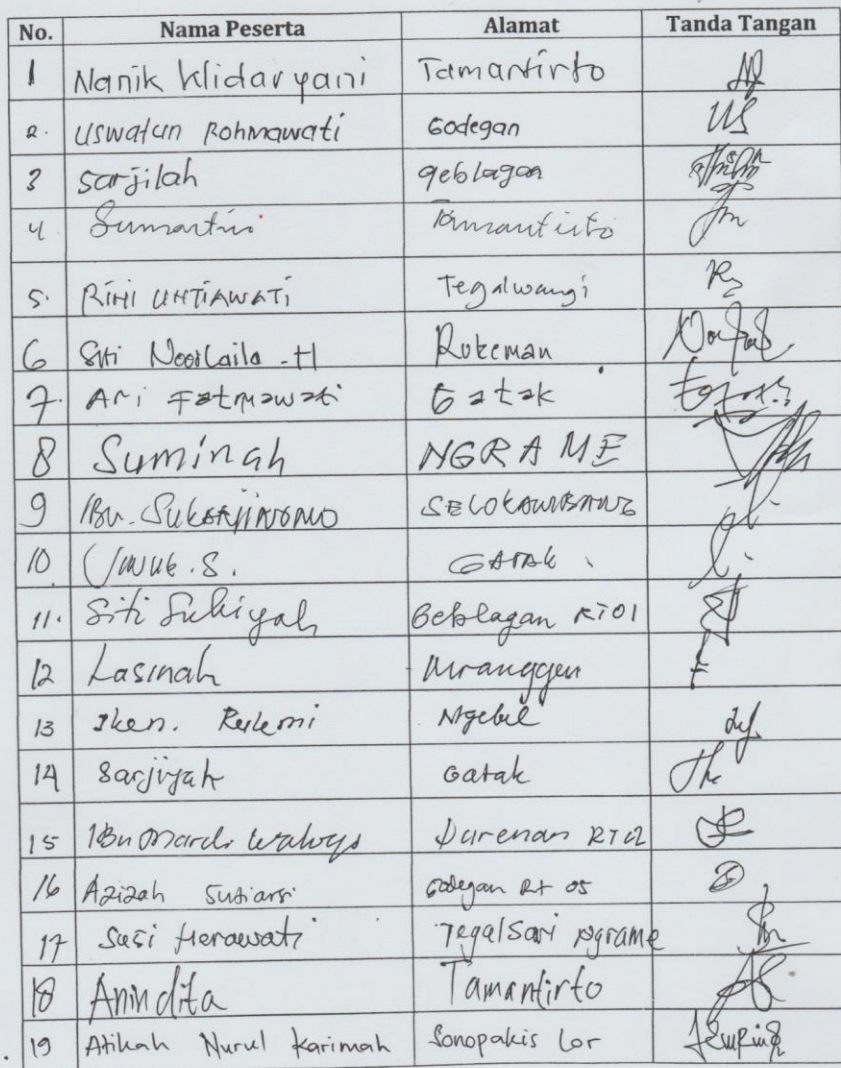 No. Nama Peserta Alamat Tanda Tangan
1 Nanik Klidaryani Tamantirto
2. Uswatun Rohmawati Godegan
3 Sarjilah geblagan
4. Sumartini Tamantirto
5. RINI UNTIAWATI Tegalwangi
6 Siti Noorlaila -H Rukeman
7. Ari Fatmawati Gatak
8 Suminah NGRAME
9 IBu. SELOKAMBANG
10 S. GATAK
11. Siti Sukiyah Geblagan RT01
12 Lasinah Mranggen
13 Iken. Ngebel
14 Sarjiyah Gatak
15 IBu Mardi Durenan RT02
16 Azizah Sutiarsi Godegan Rt 05
17 Susi Herawati Tegalsari Ngrame
18 Anindita Tamantirto
19 Atikah Nurul Karimah Sonopakis Lor